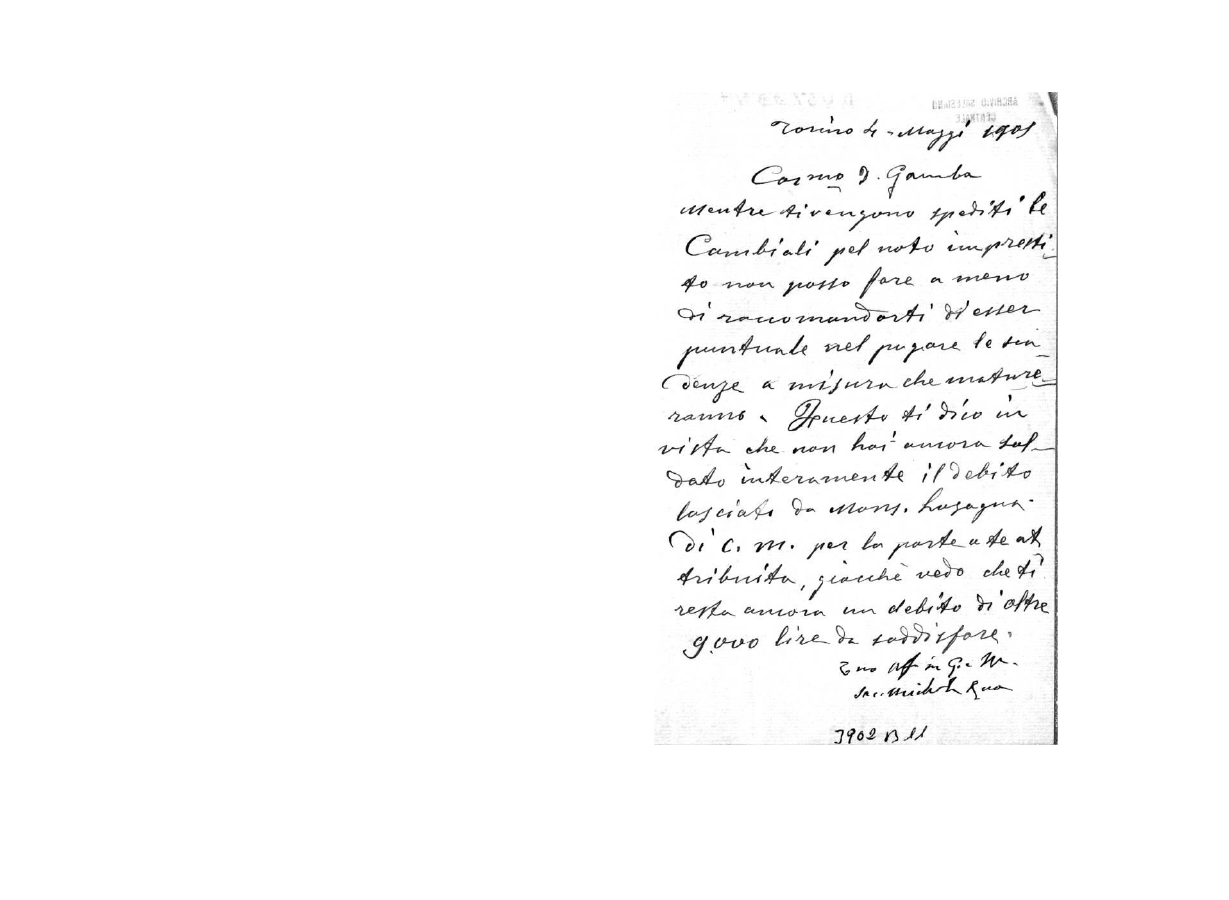 ARCHIVIO SALESIANO
CENTRALE
Torino 4 - Maggi 1901
Carmo D. Gamba
Mentre ti vengono spediti le
Cambiali pel noto impresti_
to non posso fare a meno
di raccomandarti di esser
puntuale nel pagare le sca_
denze a misura che mature_
ranno. Questo ti dico in
vista che non hai ancora sal_
dato interamente il debito
lasciato da Mons. Lasagna
di C. M. per la parte a te at
tribuita, giacchè vedo che ti
resta ancora un debito di oltre
9.000 lire da soddisfare.
Tuo aff in G. e M.
Sac. Michele Rua
3902 B 11